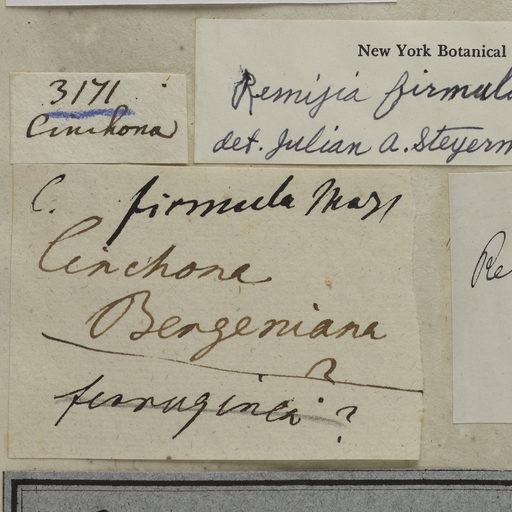 New York Botanical
3171
Cinchona
Remijia firmula
det. Julian A. Steyerm
C. firmula Mart
Cinchona
Bergeniana
?
ferruginea ?
Re